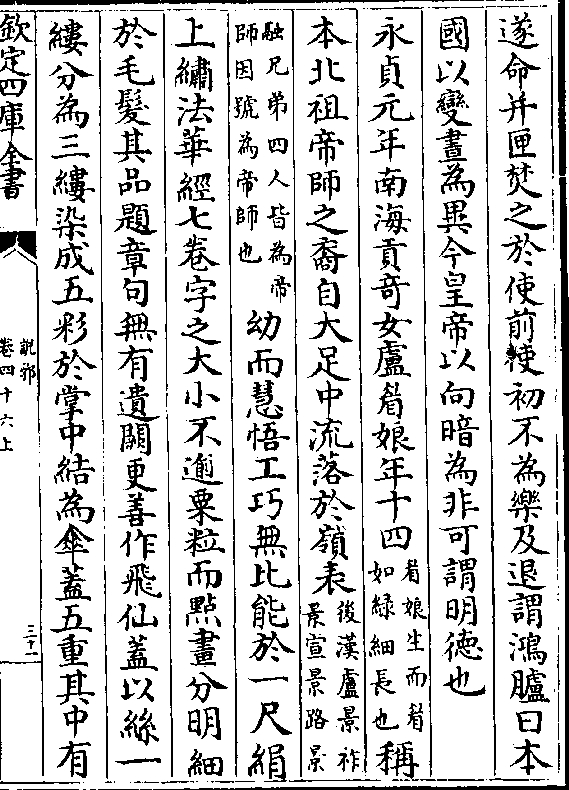 遂命并匣焚之於使前使初不為樂及退謂鴻臚曰本
國以變晝為異今皇帝以向暗為非可謂明德也
永貞元年南海貢奇女盧眉娘年十四眉娘生而眉如緑細長也稱
本北祖帝師之裔自大足中流落於嶺表後漢盧景祚景宣景路景
融兄弟四人皆為帝師因號為帝師也幼而慧悟工巧無比能於一尺絹
上繡法華經七卷字之大小不逾粟粒而點畫分明細
於毛髮其品題章句無有遺闕更善作飛仙蓋以絲一
縷分為三縷染成五彩於掌中結為傘蓋五重其中有
欽定四庫全書
說郛
卷四十六上
三十一